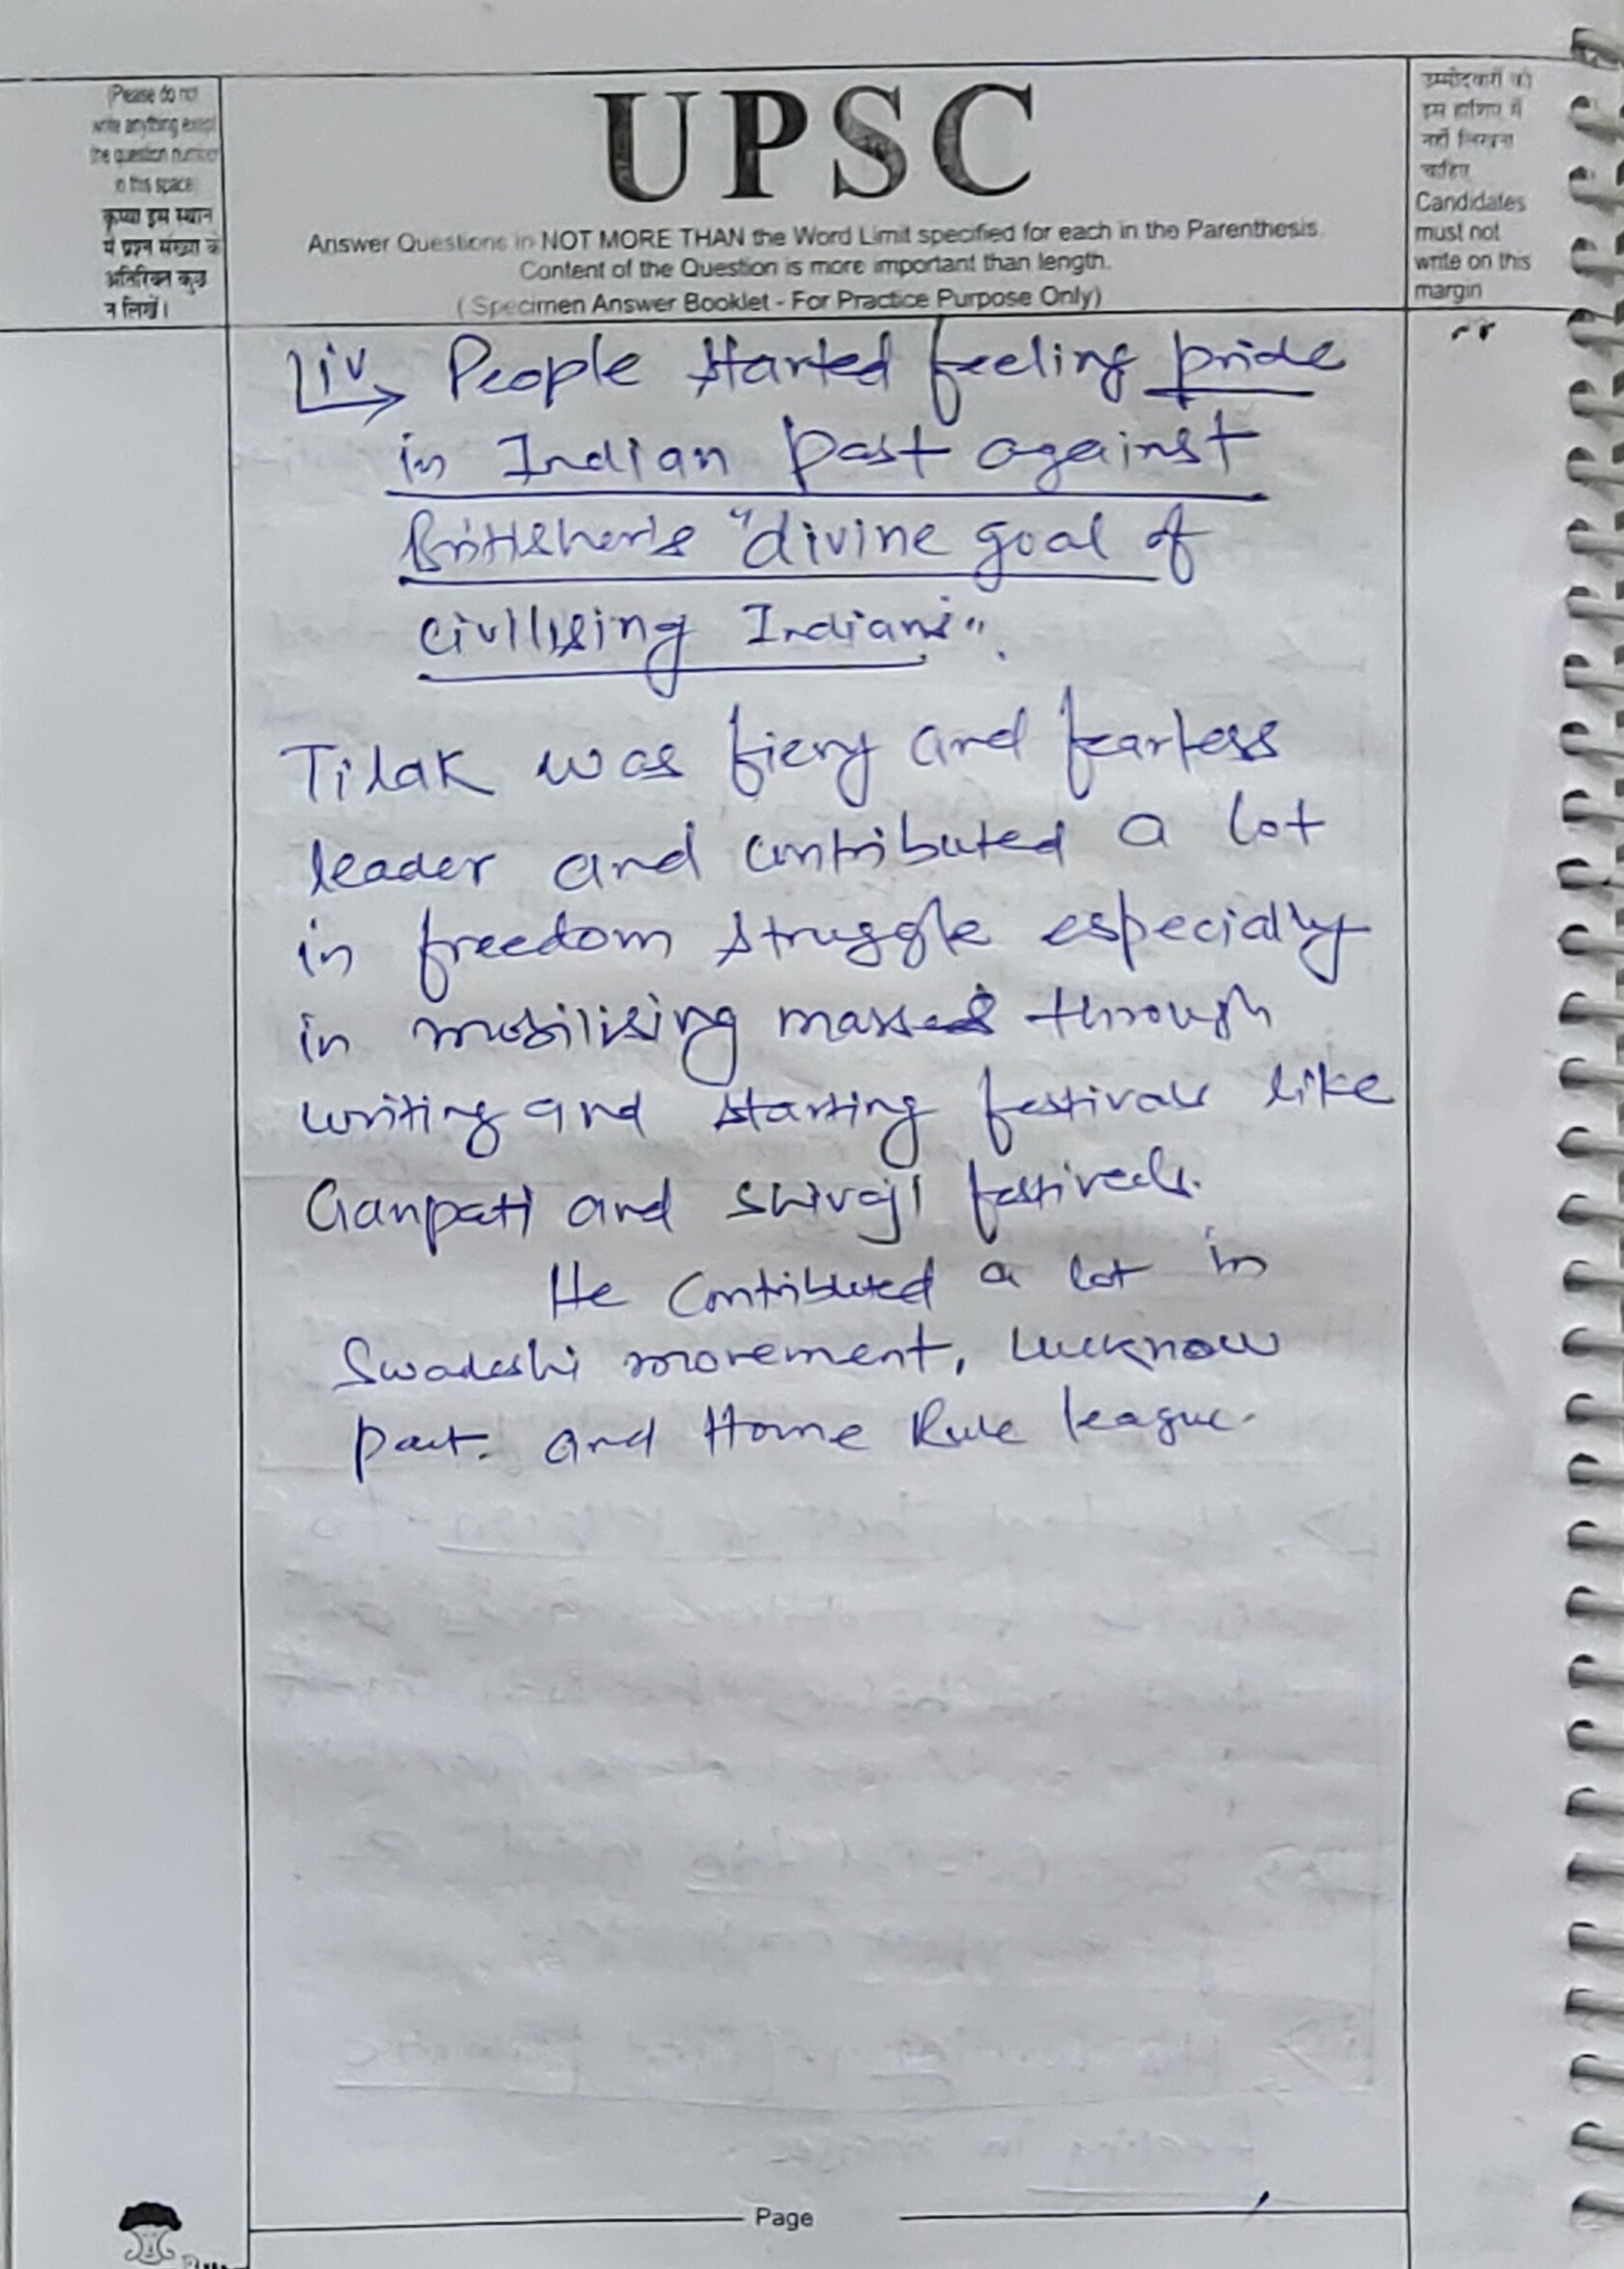 (Please do not
write anything except
the question number
in this space)
कृपया इस स्थान
में प्रश्न संख्या के
अतिरिक्त कुछ
न लिखें।
UPSC
Answer Questions in NOT MORE THAN the Word Limit specified for each in the Parenthesis.
Content of the Question is more important than length.
(Specimen Answer Booklet - For Practice Purpose Only)
उम्मीदवारों को
इस हाशिए में
नहीं लिखना
चाहिए
Candidates
must not
write on this
margin
iv People started feeling pride
in Indian past against
Britisher's "divine goal of
civilising Indians".
Tilak was fiery and fearless
leader and contributed a lot
in freedom struggle especially
in mobilising masses through
writing and starting festivals like
Ganpati and Shivaji festivals.
He contributed a lot in
Swadeshi movement, Lucknow
pact. and Home Rule league.
Page